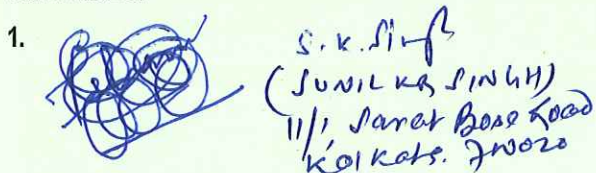 1.
S. K. Singh
(SUNIL KR SINGH)
11/1, Sarat Bose Road
Kolkata. 700020